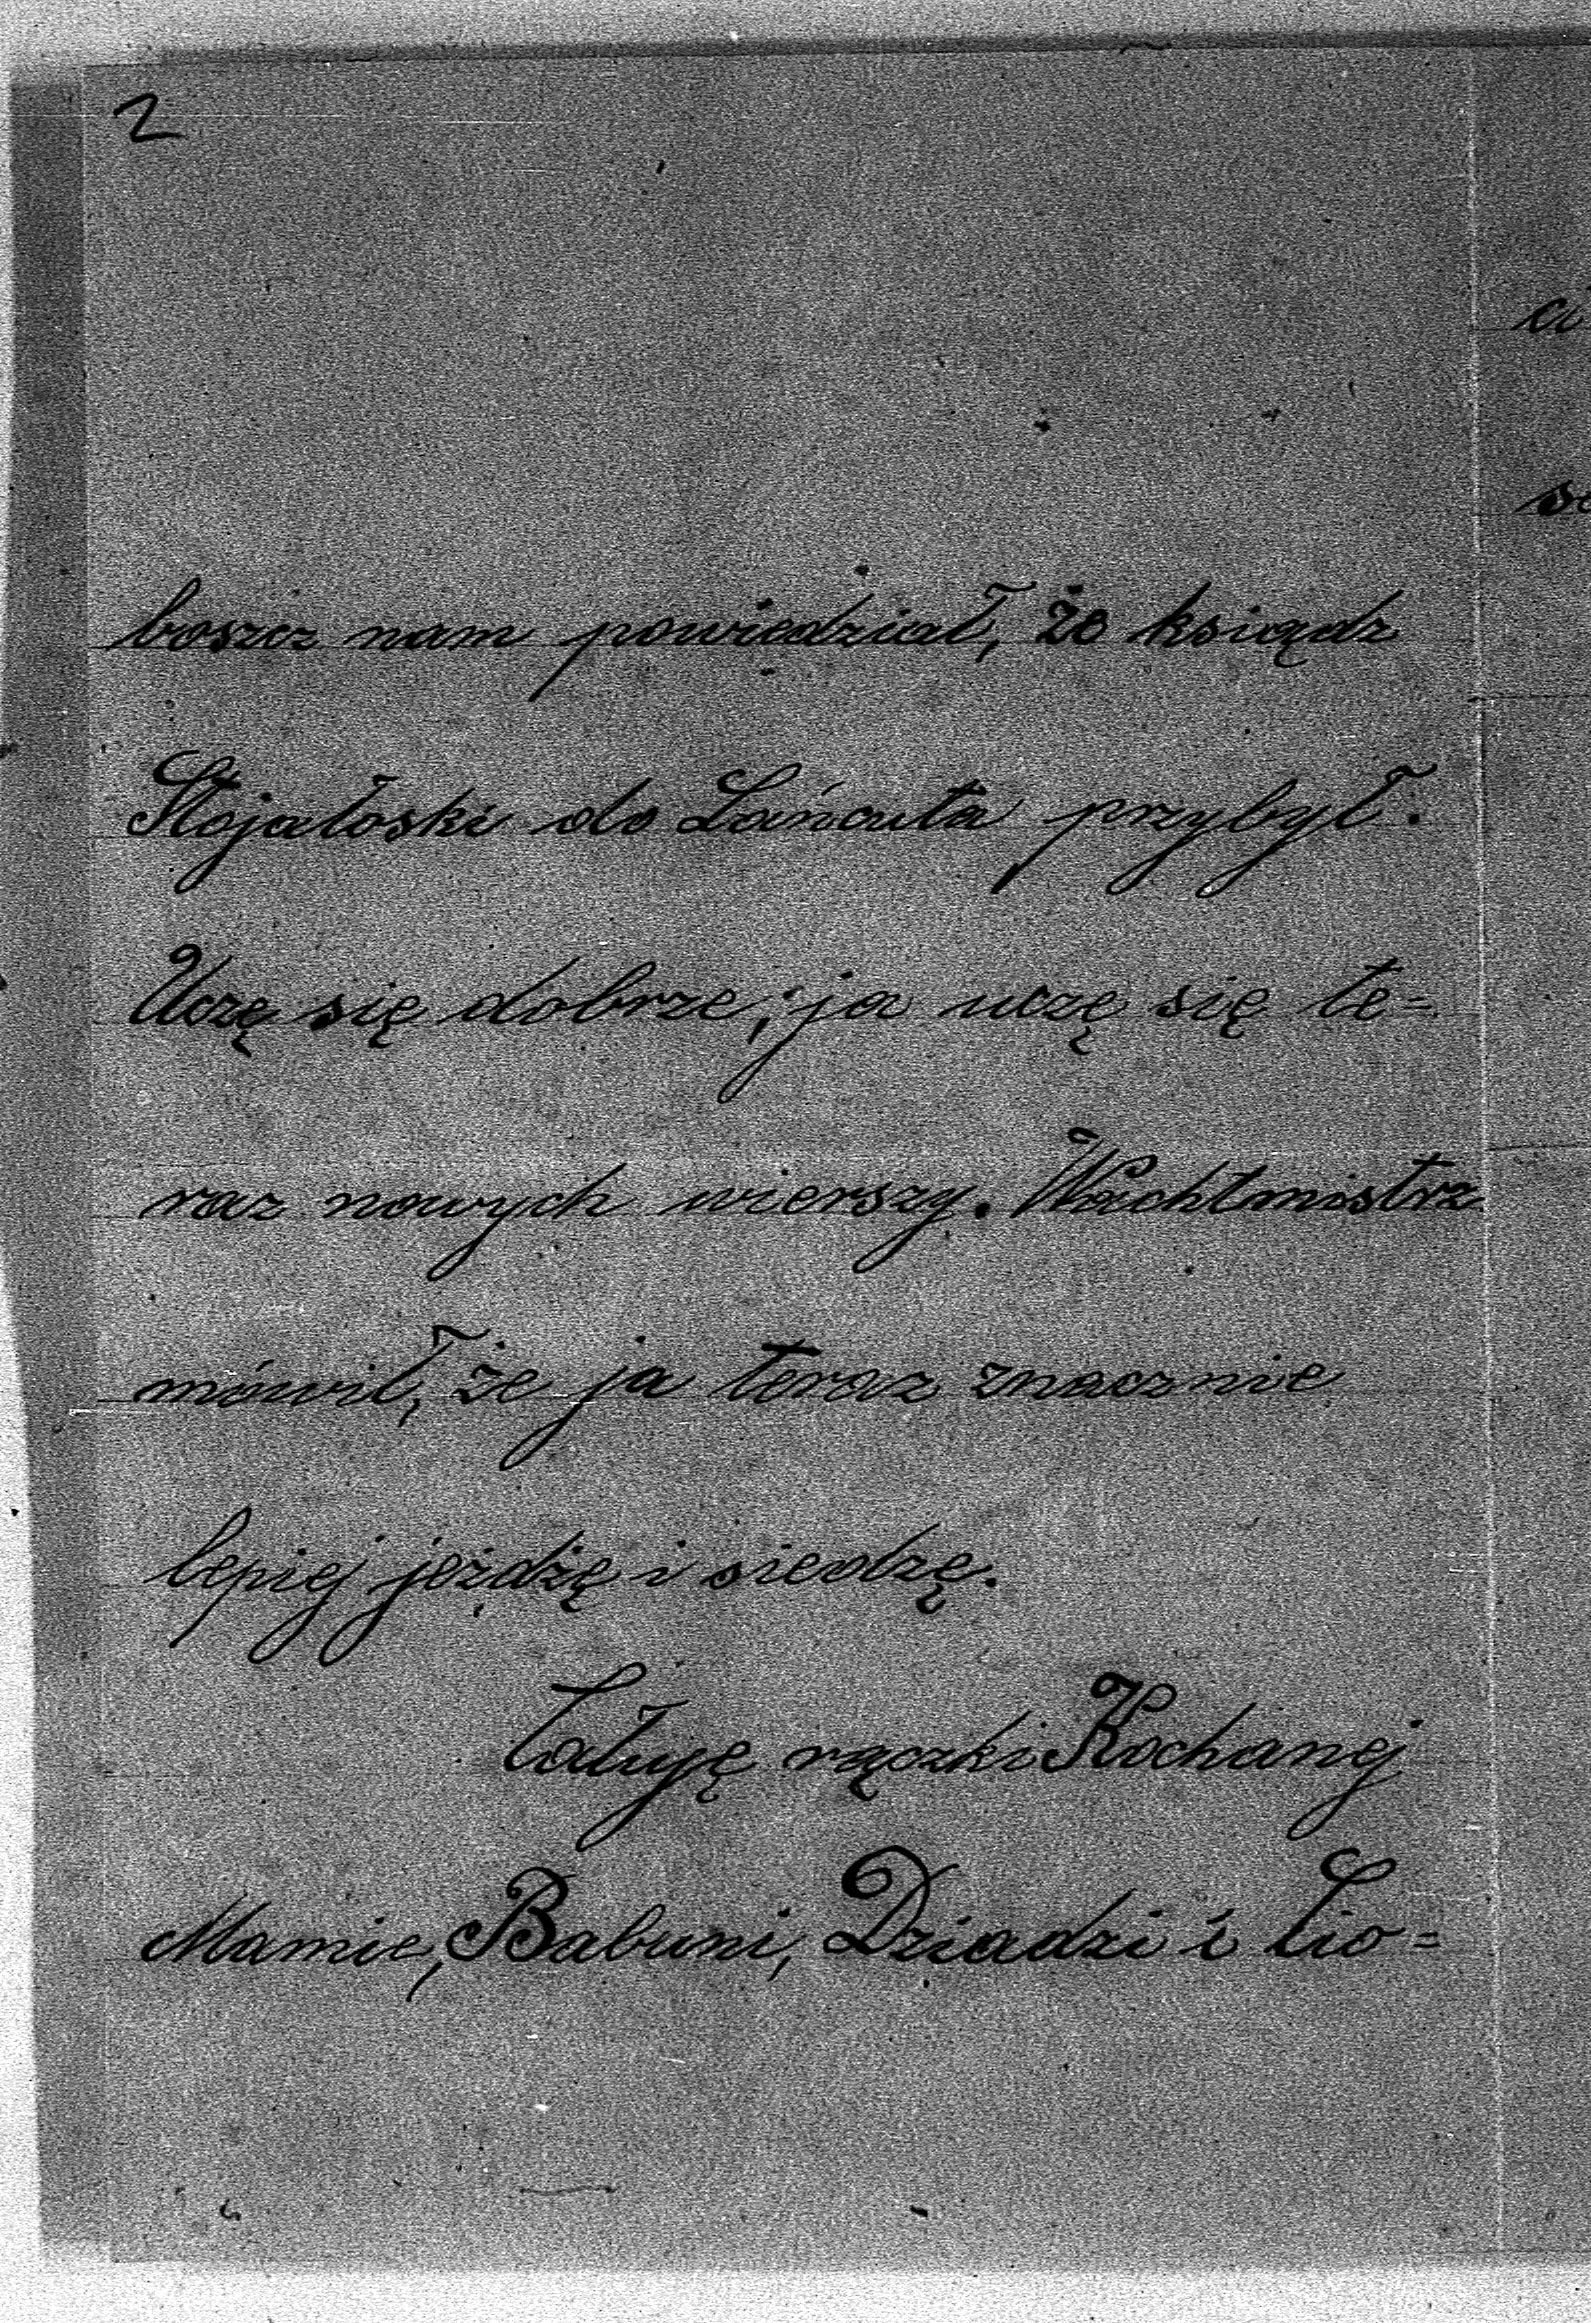 2
boszcz nam powiedział, że ksiądz
Stojałoski do Łańcuta przybył.
Uczę się dobrze, ja uczę się te=
raz nowych wierszy. Wachtmistrz
mówił, że ja teraz znacznie
lepiej jeżdżę i siedzę.
Całuję rączki Kochanej
Mamie, Babuni, Dziadzi i Cio=